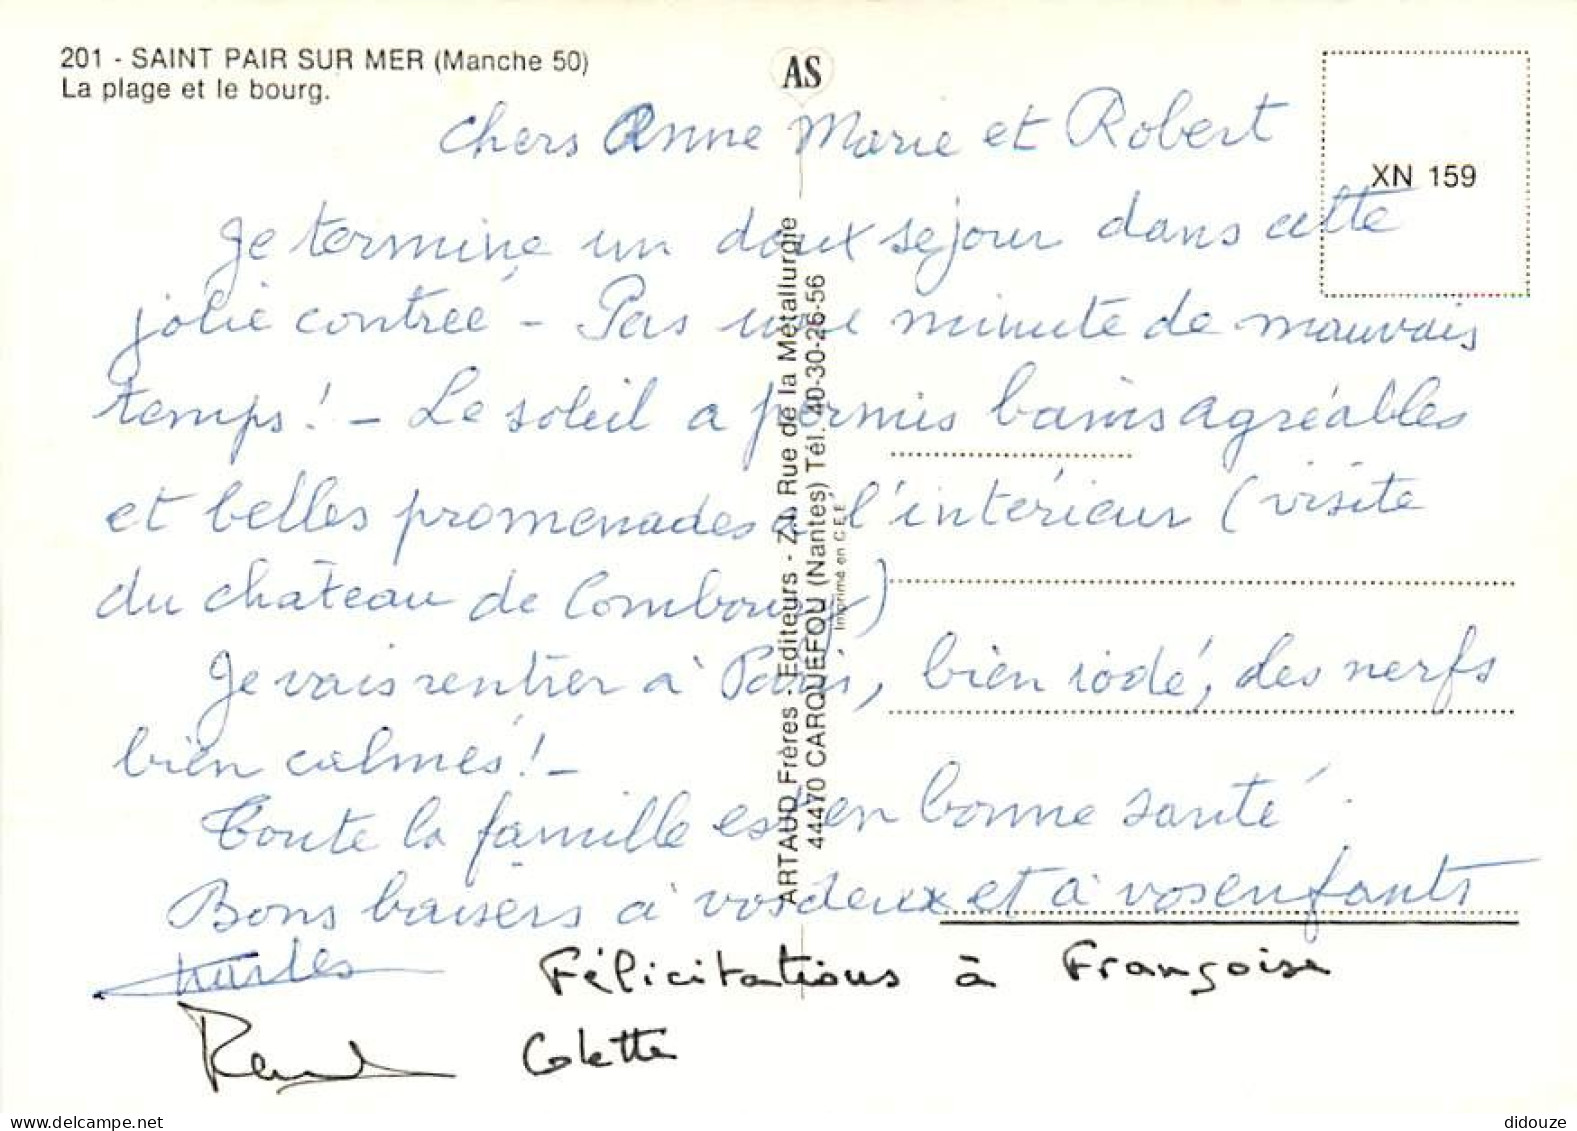 201 - SAINT PAIR SUR MER (Manche 50)
La plage et le bourg.
AS
XN 159
Chers Anne Marie et Robert
Je termine un doux séjour dans cette
jolie contrée - Pas une minute de mauvais
temps ! - Le soleil a permis bains agréables
et belles promenades à l'intérieur (visite
du château de Combourg)
Je vais rentrer à Paris, bien iodé, des nerfs
bien calmés ! -
Toute la famille est en bonne santé.
Bons baisers à vos deux et à vos enfants
Charles
Félicitations à Françoise
Colette
ARTAUD Frères - Editeurs - Z.I. Rue de la Métallurgie
44470 CARQUEFOU (Nantes) Tél. 40-30-26-56
Imprimé en C.E.E.
www.delcampe.net
didouze